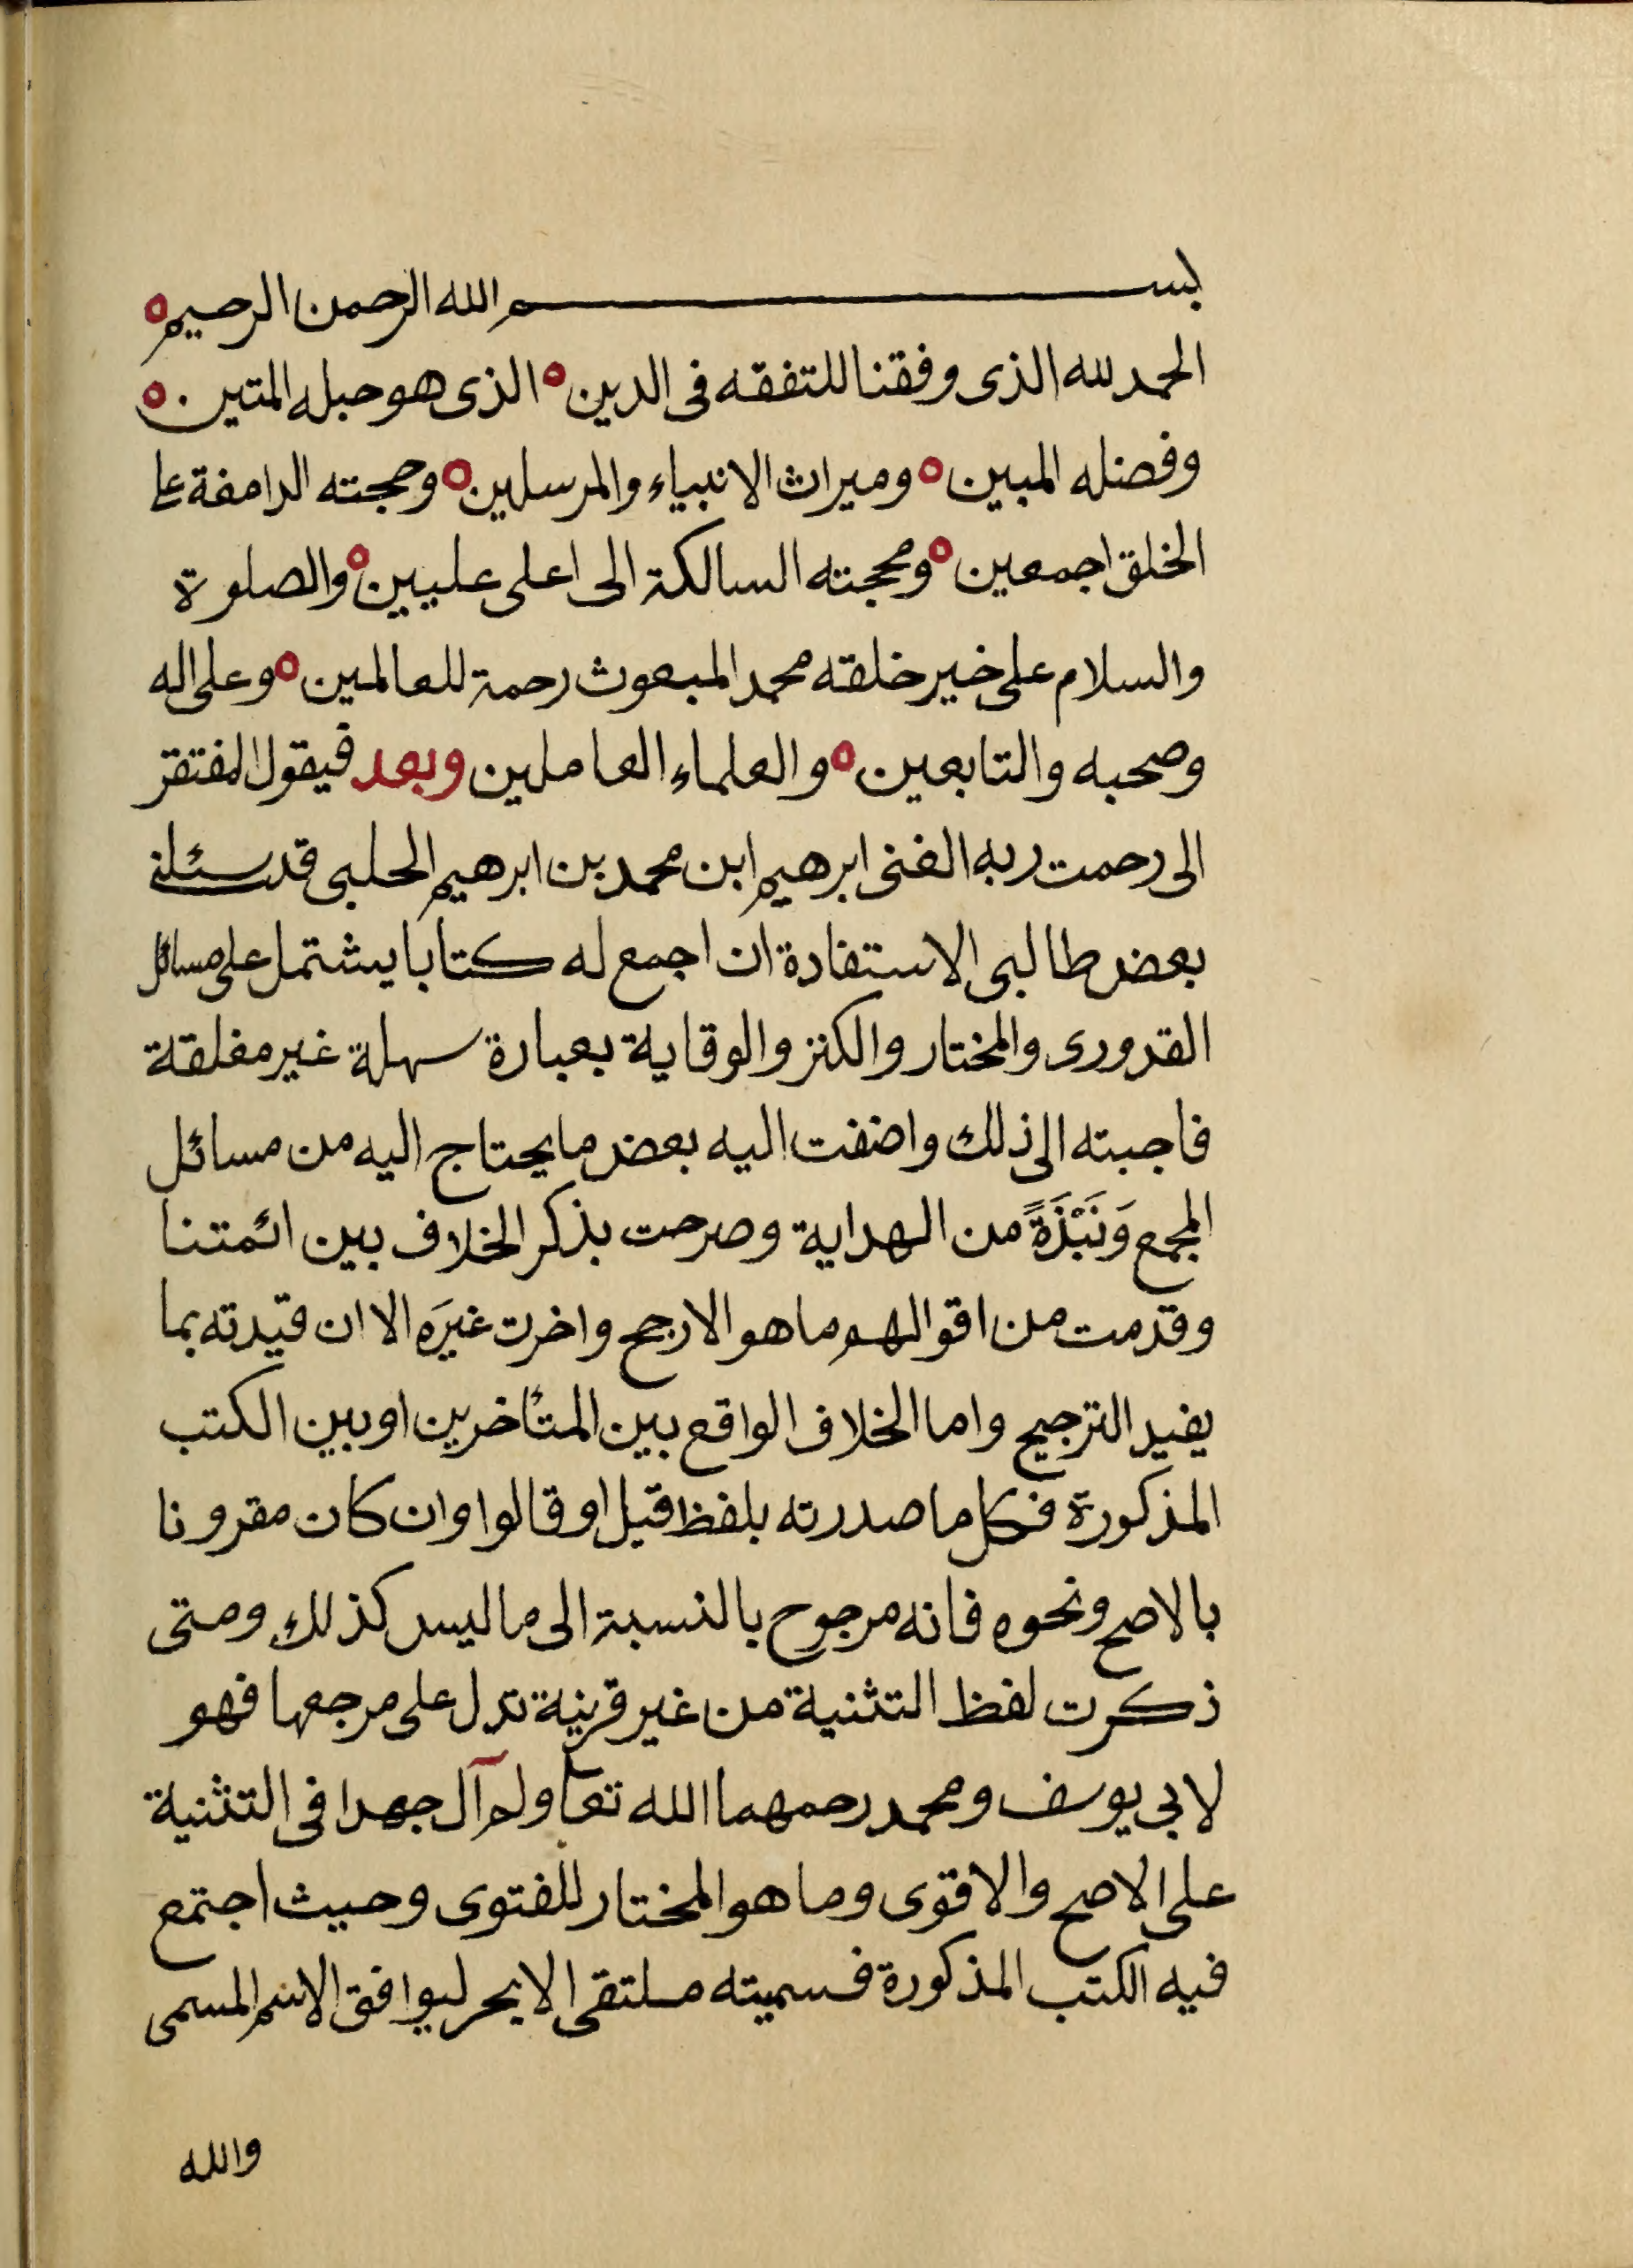 بسم الله الرحمن الرحيم
الحمد لله الذى وفقنا للتفقه فى الدين ه الذى هو حبله المتين ه
وفضله المبين ه وميراث الانبياء والمرسلين ه وحجته الدامغة على
الخلق اجمعين ه ومحجته السالكة الى اعلى عليين ه والصلوة
والسلام على خير خلقه محمد المبعوث رحمة للعالمين ه وعلى اله
وصحبه والتابعين ه والعلماء العاملين وبعد فيقول المفتقر
الى رحمت ربه الغنى ابرهيم ابن محمد بن ابرهيم الحلبى قد سئلنى
بعض طالبى الاستفادة ان اجمع له كتابا يشتمل على مسائل
القدورى والمختار والكنز والوقاية بعبارة سهلة غير مغلقة
فاجبته الى ذلك واضفت اليه بعض ما يحتاج اليه من مسائل
المجمع وَنَبْذَةً من الهداية وصرحت بذكر الخلاف بين ائمتنا
وقدمت من اقوالهم ما هو الارجح واخرت غيَره الا ان قيدته بما
يفيد الترجيح واما الخلاف الواقع بين المتأخرين او بين الكتب
المذكورة فكل ما صدرته بلفظ قيل او قالوا وان كان مقرونا
بالاصح ونحوه فانه مرجوح بالنسبة الى ما ليس كذلك ومتى
ذكرت لفظ التثنية من غير قرينة تدل على مرجعها فهو
لابي يوسف ومحمد رحمهما الله تعا ولم آل جهدا فى التثنية
على الاصح والاقوى وما هو المختار للفتوى وحيث اجتمع
فيه الكتب المذكورة فسميته ملتقى الابحر ليوافق الاسم المسمى
والله